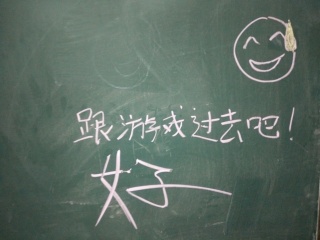 跟游戏过去吧！
好